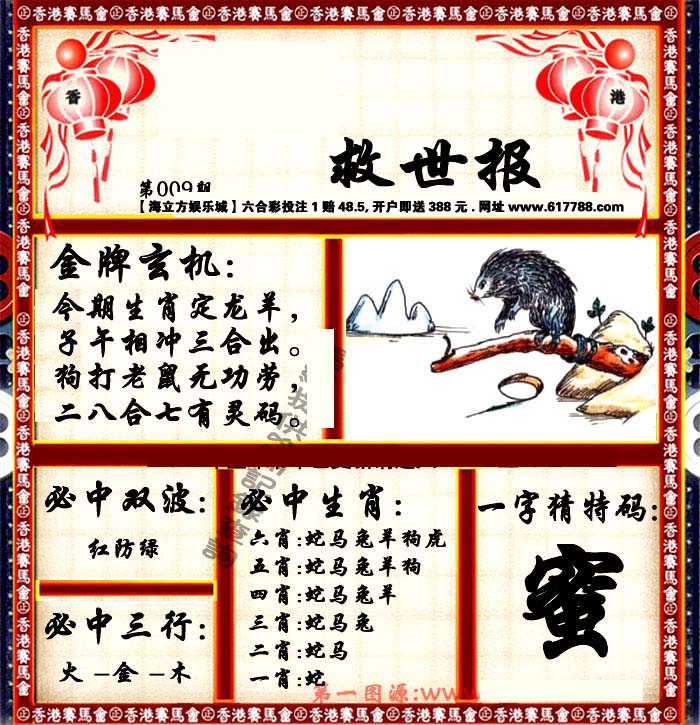 香港賽馬會㊣香港賽馬會㊣香港賽馬會㊣香港賽馬會㊣香港賽馬會㊣香港賽馬會
香
港
救世报
第009期
【海立方娱乐城】六合彩投注1赔48.5,开户即送388元.网址www.617788.com
金牌玄机:
今期生肖定龙羊,
子午相冲三合出。
狗打老鼠无功劳,
二八合七有灵码。
必中双波:
红防绿
必中三行:
火-金-木
必中生肖:
六肖:蛇马兔羊狗虎
五肖:蛇马兔羊狗
四肖:蛇马兔羊
三肖:蛇马兔
二肖:蛇马
一肖:蛇
一字猜特码:
蜜
第一图源:www
香港賽馬會㊣香港賽馬會㊣香港賽馬會㊣香港賽馬會㊣香港賽馬會㊣香港賽馬會